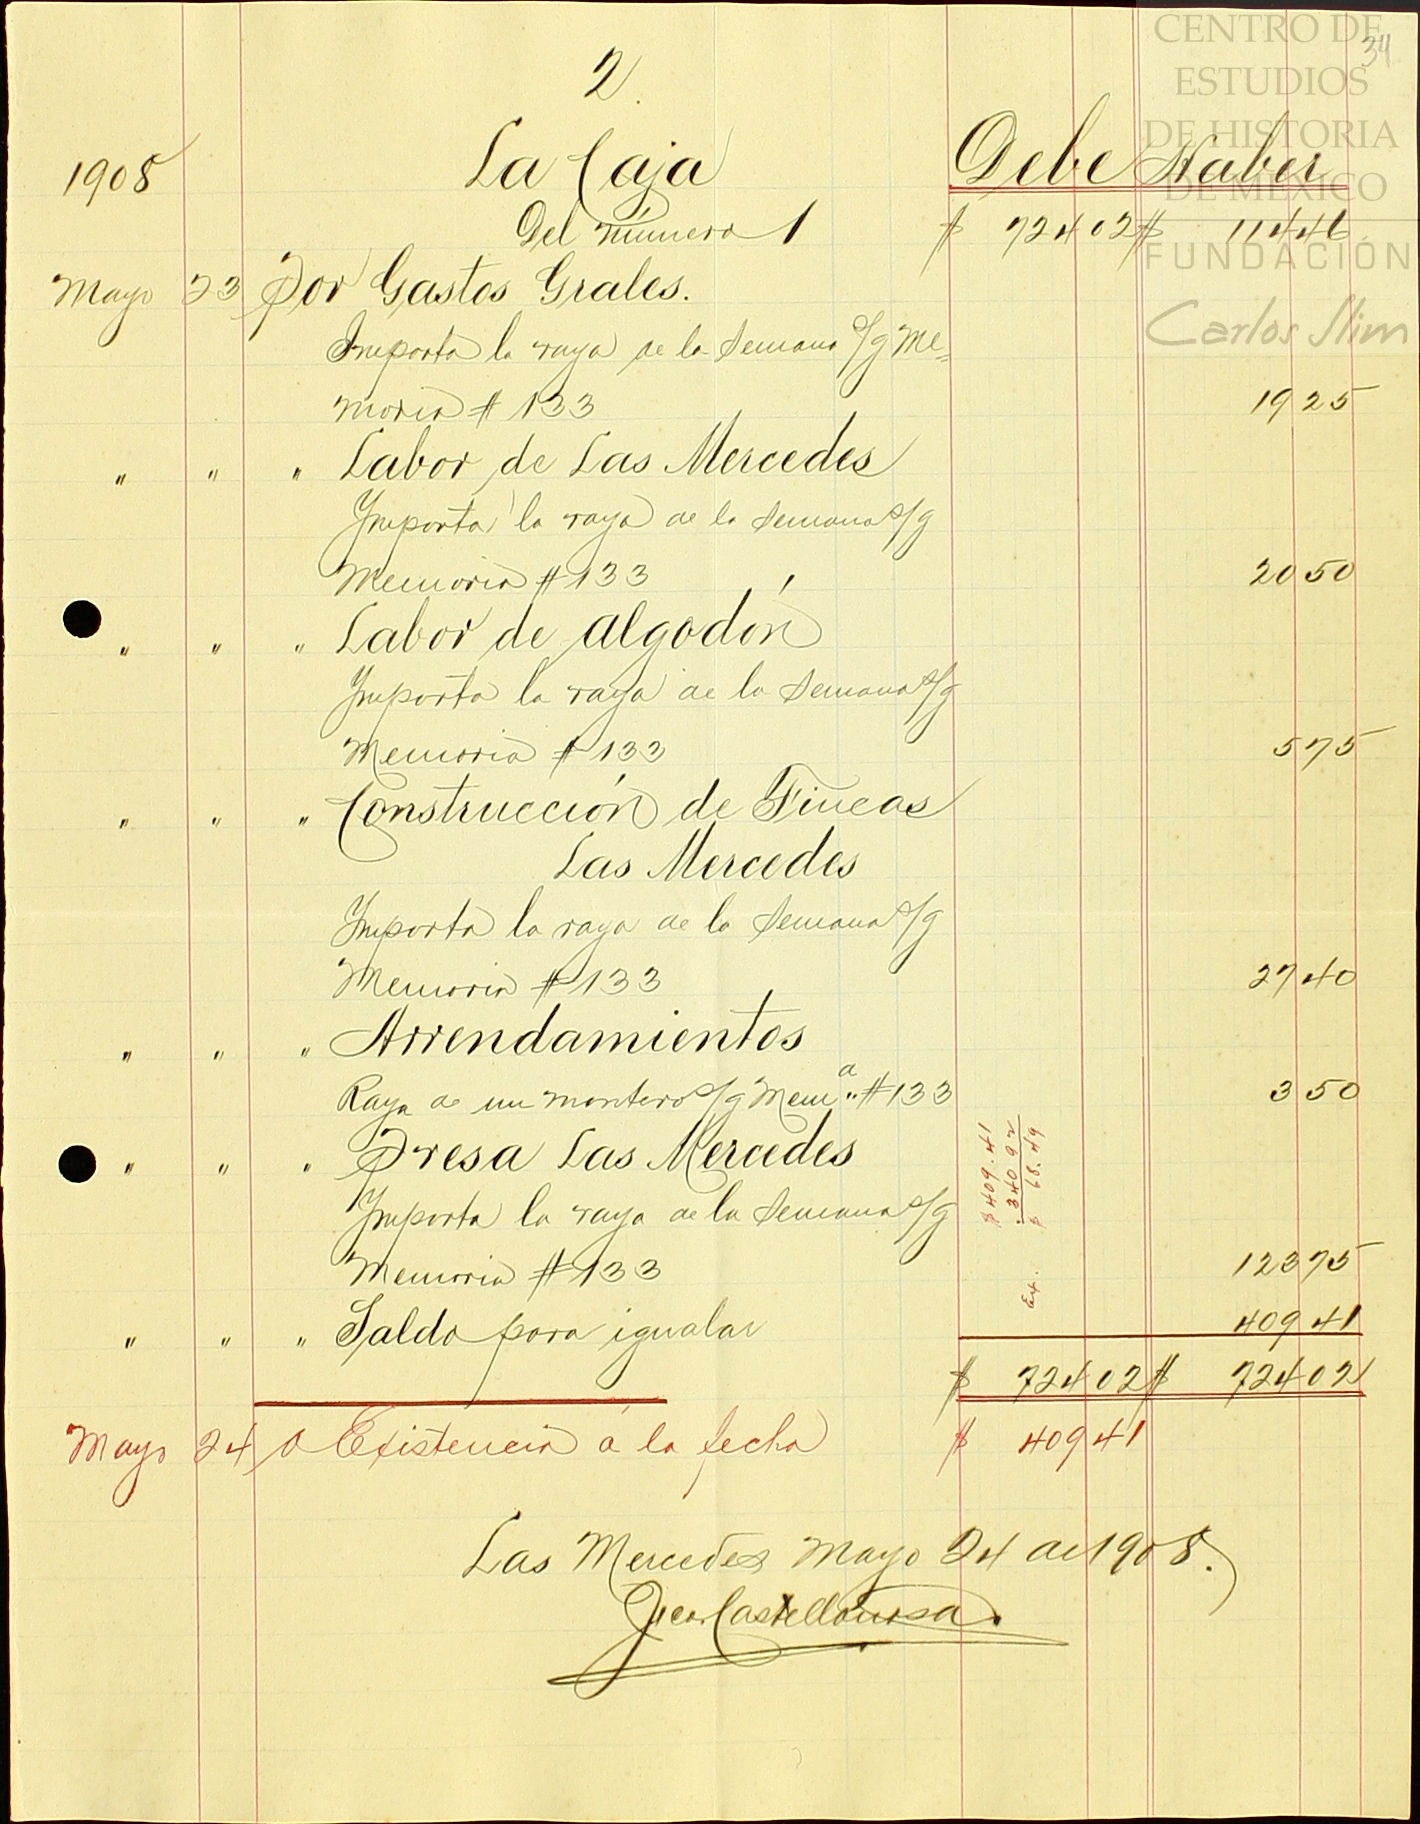 34
CENTRO DE
ESTUDIOS
DE HISTORIA
DE MÉXICO
FUNDACIÓN
Carlos Slim
2
1908 La Caja Debe Haber
Del número 1 $ 724 02 $ 114 46
Mayo 23 Por Gastos Grales.
Importa la raya de la semana s/g Me=
moria # 133 19 25
" " " Labor de Las Mercedes
Importa la raya de la semana s/g
Memoria # 133 20 50
" " " Labor de algodón
Importa la raya de la semana s/g
Memoria # 133 5 75
" " " Construcción de Fincas
Las Mercedes
Importa la raya de la semana s/g
Memoria # 133 27 40
" " " Arrendamientos
Raya de un montero s/g Mem.ª # 133 3 50
" " " Presa Las Mercedes
Importa la raya de la semana s/g
Memoria # 133 123 75
" " " Saldo para igualar 409 41
$ 724 02 $ 724 02
$ 409.41
340 92
Ex. $ 68.49
Mayo 24 A Existencia á la fecha $ 409 41
Las Mercedes Mayo 24 de 1908.